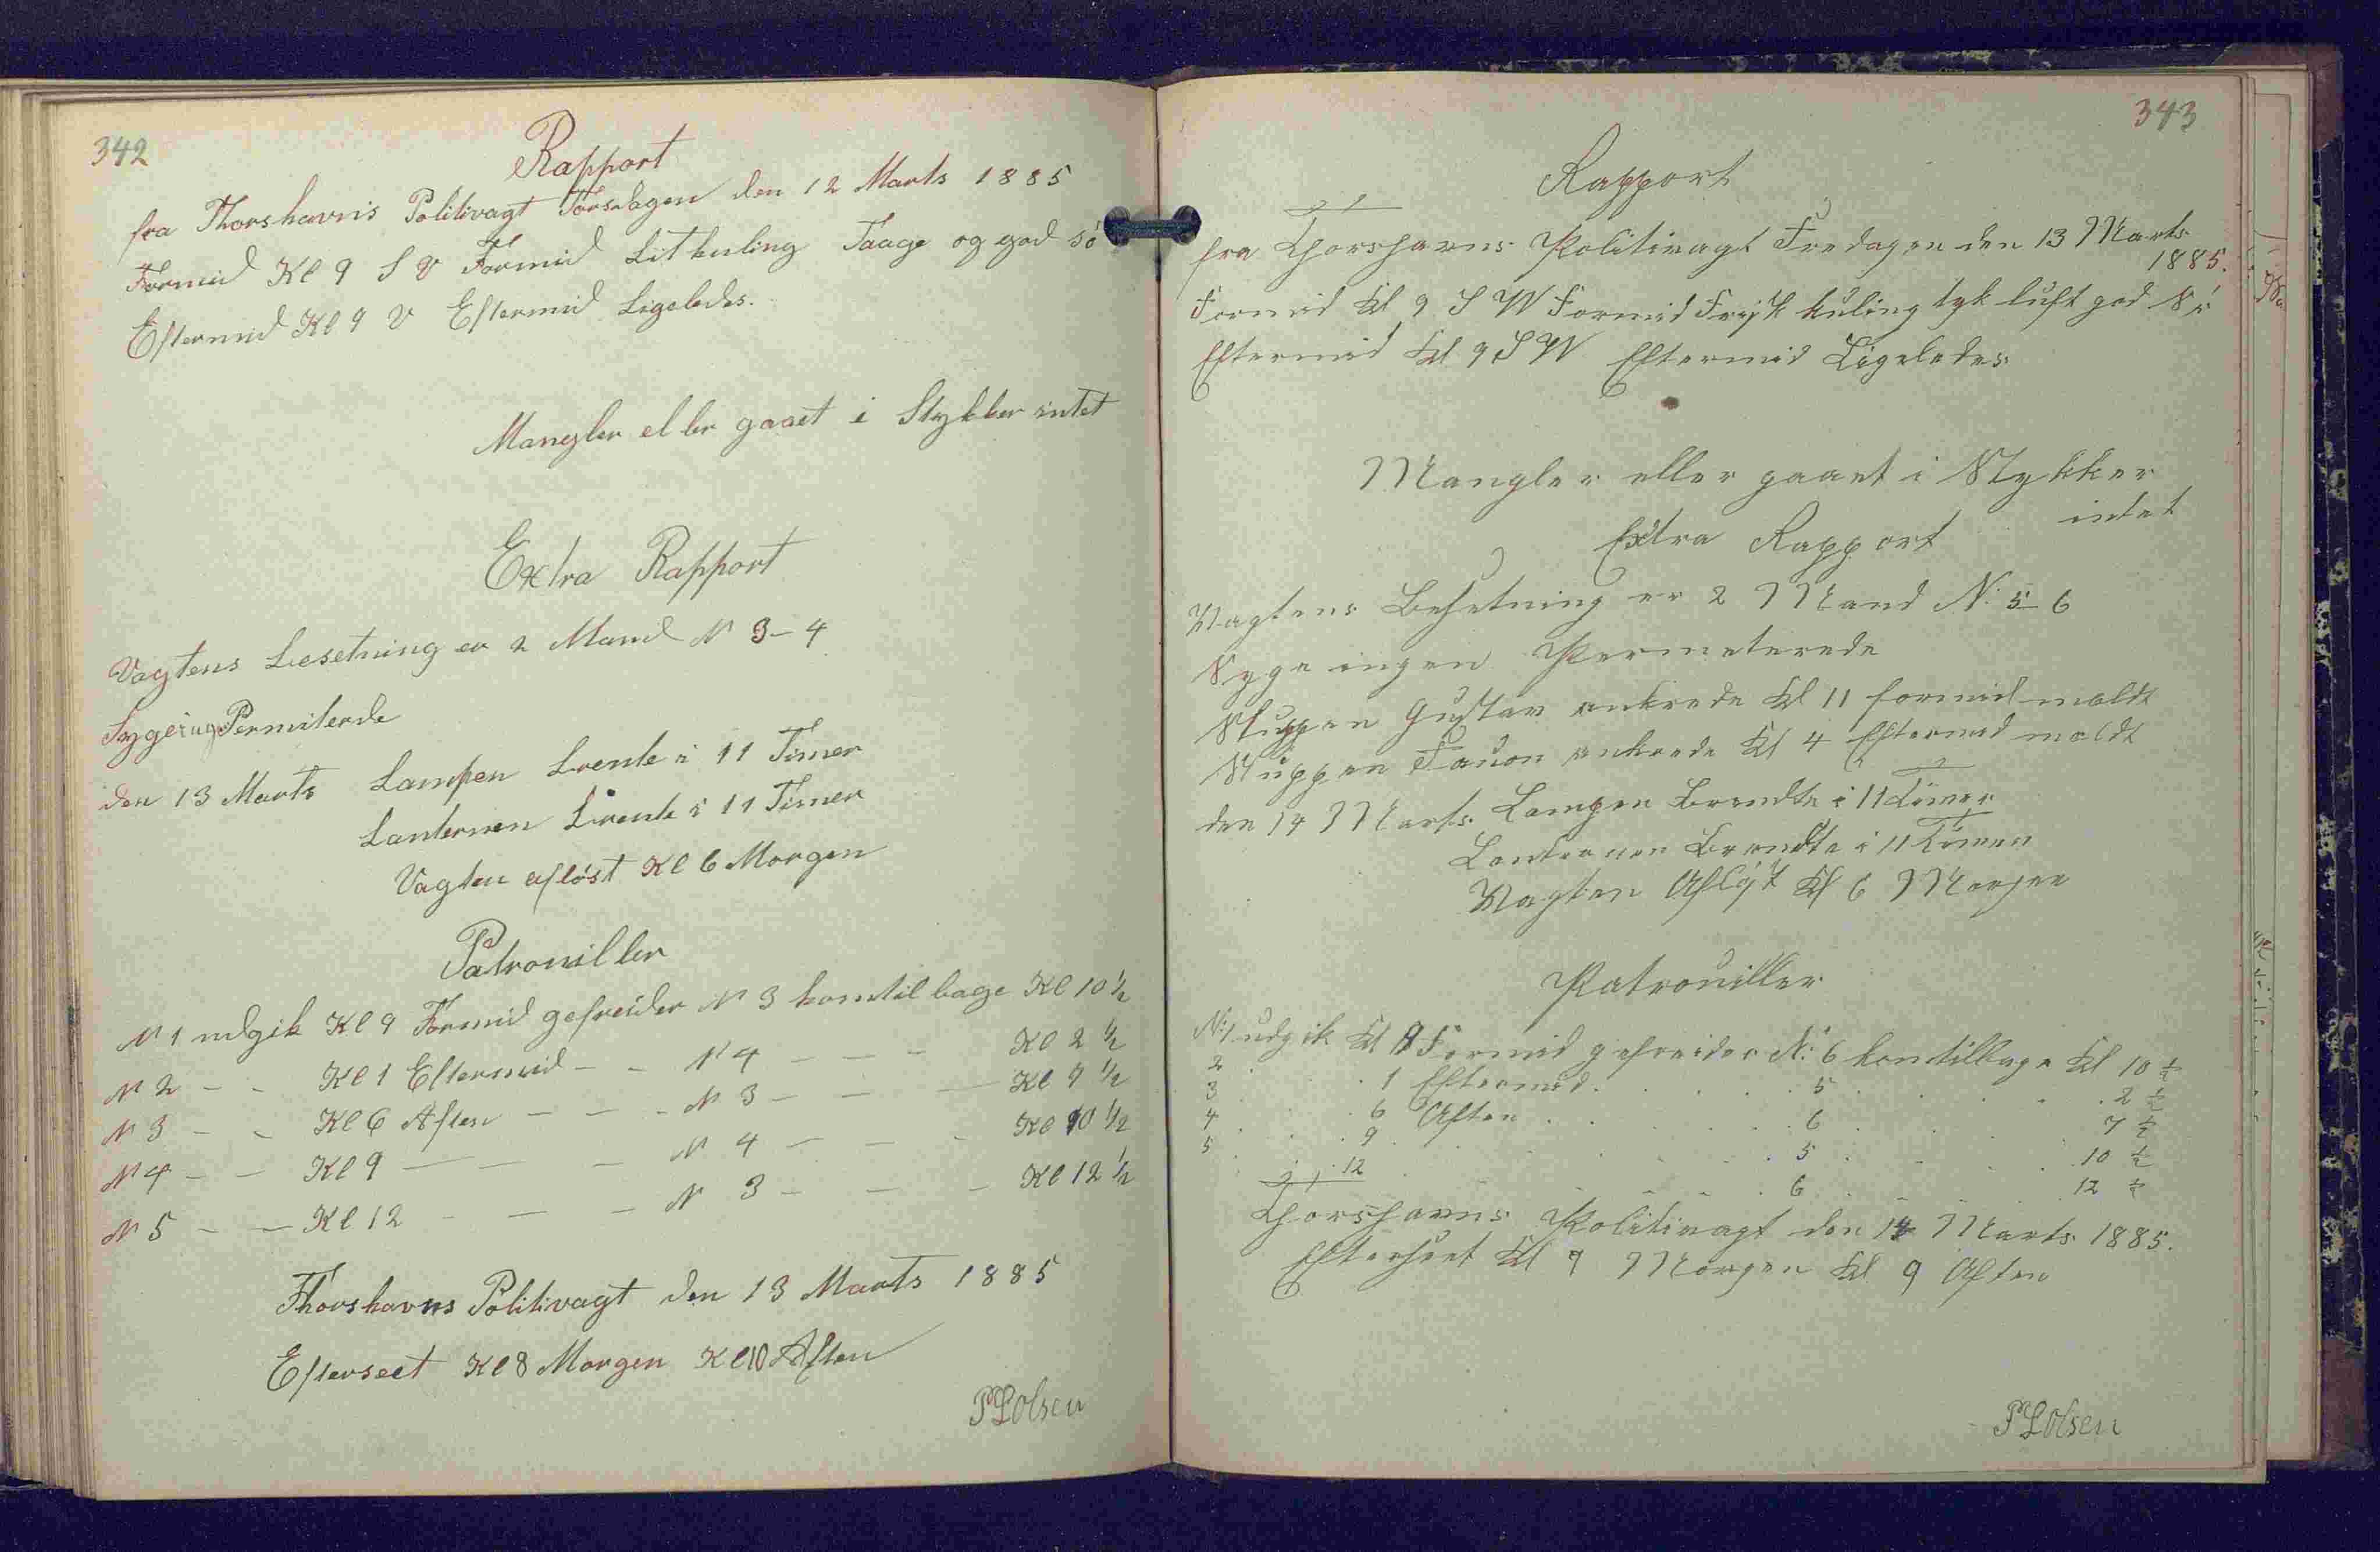 342
Rapport
fra Thorshavns Politivagt Torsdagen den 12 Marts 1885
Formid Kl 9 S V Formid Litkuling Taage og god só
Eftermid Kl 9 V Eftermid Ligeledes.
Mangler eller gaaet i Stykker intet
Extra Rapport
Vagtens Besetning er 2 Mand N 3-4
Syge ing Permiterde
den 13 Marts Lampen brente i 11 Timer
Lanternen brente i 11 Timer
Vagten aflöst Kl 6 Morgen
Patrouiller
N 1 udgik Kl 9 Formid gefreider N 3 kom tilbage Kl 10 ½
N 2 - - Kl 1 Eftermid - - N 4 - - - Kl 2 ½
N 3 - - Kl 6 Aften - - - N 3 - - - Kl 7 ½
N 4 - - Kl 9 - - - N 4 - - - Kl 10 ½
N 5 - - Kl 12 - - - N 3 - - - Kl 12 ½
Thorshavns Politivagt den 13 Marts 1885
Efterseet Kl 8 Morgen Kl 10 Aften
P L Olsen
343
Rapport
fra Thorshavns Politivagt Fredagen den 13 Marts
1885.
Formid Kl 9 S W Formid Frisk kuling tyk luft god Sö
Eftermid Kl 9 S W Eftermid Ligeledes
Mangler eller gaaet i Stykker
intet
Extra Rapport
Vagtens Besetning er 2 Mand N: 5-6
Syge ingen Permeterede
Sluppen Gustav ankrede Kl 11 formid meldt
Sluppen ankrede Kl 4 Eftermid meldt
den 14 Marts Lampen Brendte i 11 Timer
Lanternen Brendte i 11 Timer
Vagten Aflöst Kl 6 Morgen
Patrouiller
N: 1 udgik Kl 9 Formid gefreider N: 6 kom tilbage Kl 10 ½
2 . . 1 Eftermid . . . 5 . . . 2 ½
3 . . 6 Aften . . . 6 . . . 7 ½
4 . . 9 . . . 5 . . . 10 ½
5 . . 12 . . . 6 . . . 12 ½
Thorshavns Politivagt den 14 Marts 1885.
Efterseet Kl 9 Morgen Kl 9 Aften
P L Olsen